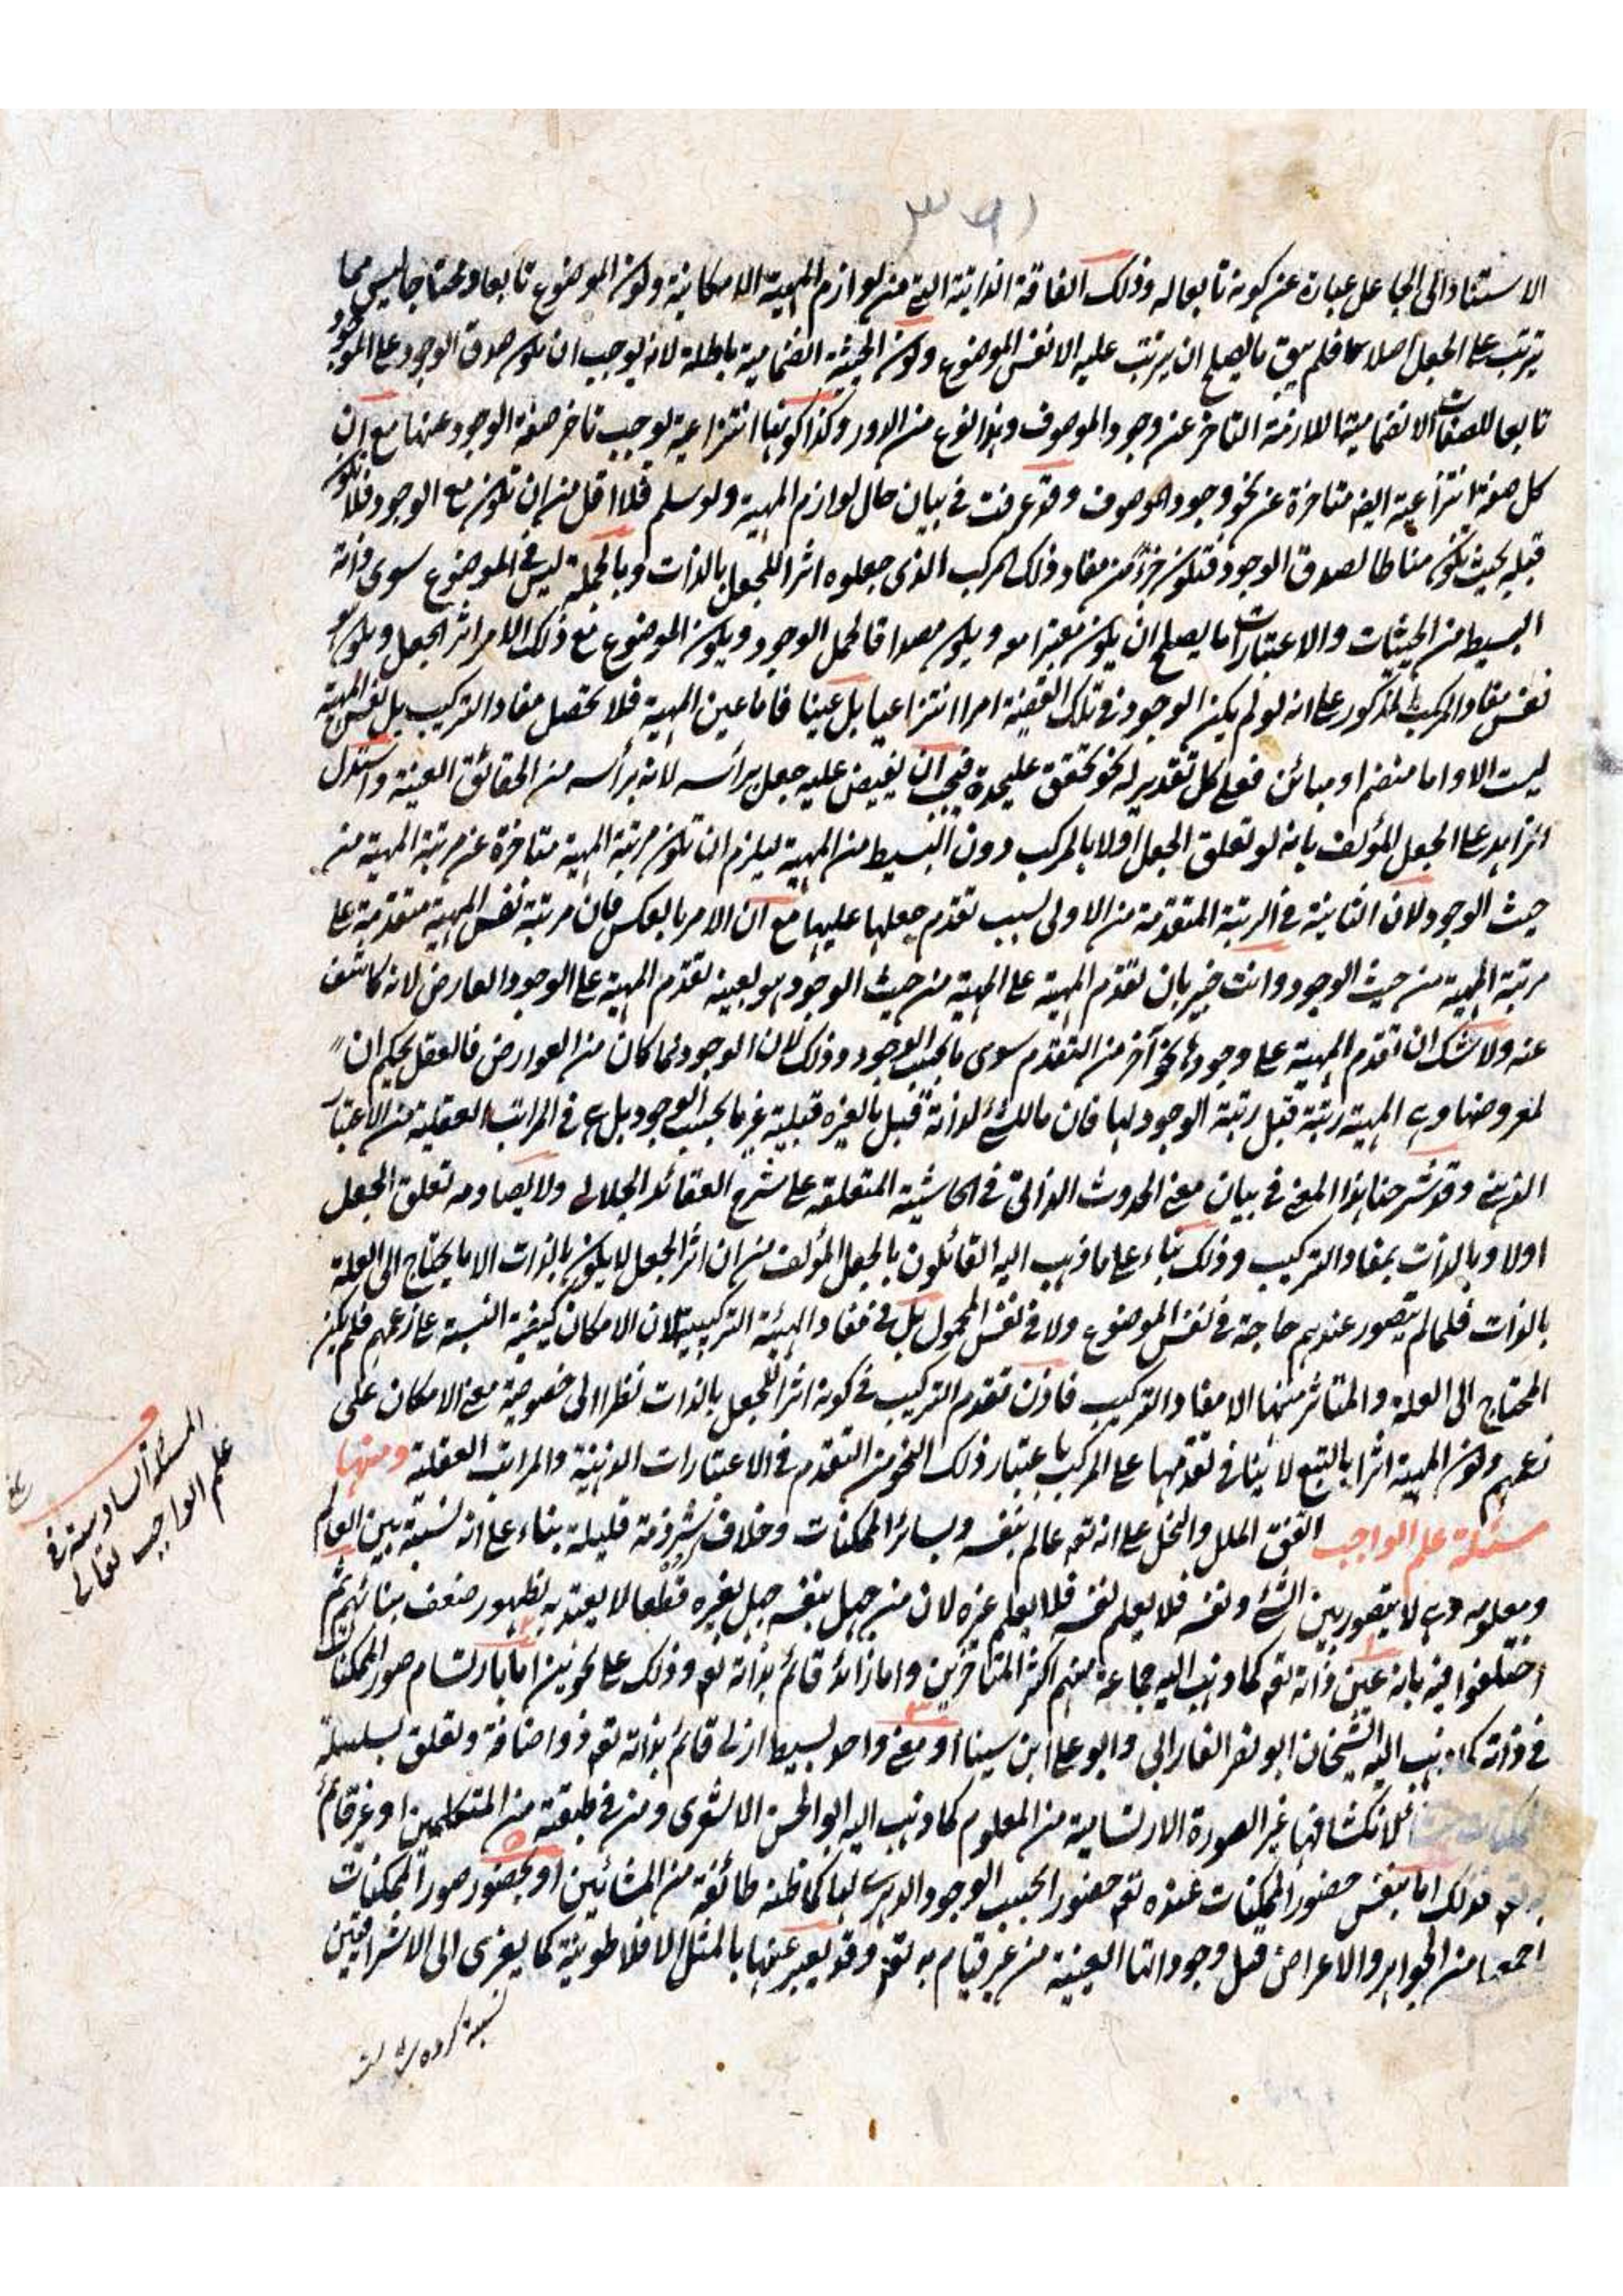 الاستناد الى الجاعل عبارة عن كونه تابعا له وذلك الفاقة الذاتية التي من لوازم المهية الامكانية وكون الموضوع تابعا ومحتاجا ليس مما
يترتب على الجعل اصلا كما فلم يبق ما يصلح ان يترتب عليه الا نفس الموضوع وكون الحيثية انضمامية باطلة لانه يوجب ان يكون صدق الوجود على الموجود
تابعا للصفات الانضمامية اللازمة التاخر عن وجود الموصوف وهذا نوع من الدور وكذا كونها انتزاعية لوجب تاخر صفة الوجود عنها مع ان
كل صفة انتزاعية ايضا متاخرة عن نحو وجود الموصوف وقد عرفت في بيان حال لوازم المهية ولو سلم فلا اقل من ان تكون مع الوجود فلا تكون
قبله بحيث تكون مناطا لصدق الوجود فتكون جزءً من مفاد ذلك المركب الذي جعلوه اثرا للجعل بالذات وبالجملة ليس في الموضوع سوى ذاته
البسيط من الحيثيات والاعتبارات ما يصلح ان يكون معتبرا معه ويكون مصداقا لحمل الوجود ويكون الموضوع مع ذلك الامر اثر الجعل ويكون هو
نفس مفاد المركب المذكور على انه لو لم يكن الوجود في تلك القضية امرا انتزاعيا بل عينا فاما عين المهية فلا تحصل مفاد التركيب بل نفس المهية
ليست الا واما منضم او مبائن فعلى كل تقدير له نحو تحقق عليحدة فيجب ان يفيض عليه جعل برأسه لانه برأسه من الحقائق العينية واستدل
الزاهد على الجعل المؤلف بانه لو تعلق الجعل اولا بالمركب دون البسيط من المهية ليلزم ان تكون مرتبة المهية متاخرة عن مرتبة المهية من
حيث الوجود لان الثانية في الرتبة المتقدمة من الاولى بسبب تقدم جعلها عليها مع ان الامر بالعكس فان مرتبة نفس المهية متقدمة على
مرتبة المهية من حيث الوجود وانت خبير بان تقدم المهية على المهية من حيث الوجود هو بعينه تقدم المهية على الوجود العارض لانه كاشف
عنه ولا شك ان تقدم المهية على وجودها نحو آخر من التقدم سوى ما بحسب الوجود وذلك لان الوجود لما كان من العوارض فالعقل يحكم ان
لمعروضها وهي المهية رتبة قبل رتبة الوجود لها فان ما للشئ لذاته قبل ما لغيره قبلية غير ما بحسب الوجود بل هي في المراتب العقلية من الاعتبار
الذهني وقد شرحنا هذا المعنى في بيان معنى الحدوث الذاتي في الحاشية المتعلقة على شرح العقائد الجلالي ولا يصادمه تعلق الجعل
اولا وبالذات بمفاد التركيب وذلك بناء على ما ذهب اليه القائلون بالجعل المؤلف من ان اثر الجعل لا يكون بالذات الا ما يحتاج الى العلة
بالذات فلما لم يتصور عندهم حاجة في نفس الموضوع ولا في نفس المحمول بل في مفاد الهيئة التركيبية لان الامكان كيفية النسبة على زعمهم فلم يكن
المحتاج الى العلة والمتاثر منها الا مفاد التركيب فاذن تقدم التركيب في كونه اثرا للجعل بالذات نظرا الى خصوصية معنى الامكان على
زعمهم وكون المهية اثرا بالتبع لا ينافي تقدمها على المركب باعتبار ذلك النحو من التقدم في الاعتبارات الذهنية والمراتب العقلية ومنها
مسئلة علم الواجب اتفق الملل والنحل على انه تعم عالم بنفسه وبسائر الممكنات وخلاف شرذمة قليلة بناء على انه نسبة بين العالم
ومعلومه وهي لا يتصور بين الشئ ونفسه فلا يعلم نفسه فلا يعلم غيره لان من جهل بنفسه جهل بغيره قطعا لا يعتد به لظهور ضعف بنائهم ثم
اختلفوا فيه بانه ١ عين ذاته تعم كما ذهب اليه جماعة منهم اكثر المتاخرين واما زائد قائم بذاته تعم وذلك على نحوين ٢ اما بارتسام صور الممكنات
في ذاته كما ذهب اليه الشيخان ابو نصر الفارابي وابو علي ابن سينا ٣ او معنى واحد بسيط ازلي قائم بذاته تعم ذو اضافة وتعلق بسلسلة
الممكنات للانكشاف غير الصورة الارتسامية من المعلوم كما ذهب اليه ابو الحسن الاشعري ومن في طبقته من المتكلمين او غير قائم
به تعم فذلك اما بنفس حضور الممكنات عنده تعم حضورا بحسب الوجود الدهري لها كما ظنه طائفة من المشائين ٥ او بحضور صور الممكنات
اجمعها من الجواهر والاعراض قبل وجوداتها العينية من غير قيام به تعم وقد يعبر عنها بالمثل الافلاطونية كما يعزى الى الاشراقيين
المسئلة السادسة في
علم الواجب تعالى